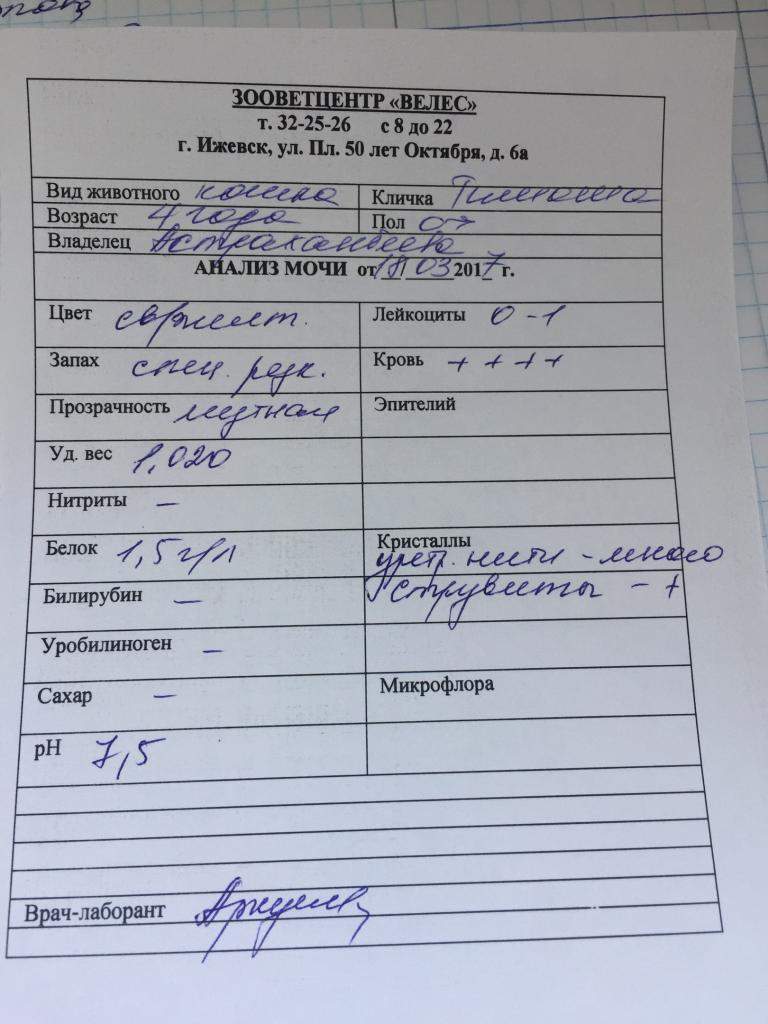 ЗООВЕТЦЕНТР «ВЕЛЕС»
т. 32-25-26 с 8 до 22
г. Ижевск, ул. Пл. 50 лет Октября, д. 6а
Вид животного кошка Кличка
Возраст 4 года Пол
Владелец Астраханцева
АНАЛИЗ МОЧИ от 18 03 2017 г.
Цвет Лейкоциты 0 - 1
Запах спец. резк. Кровь + + + +
Прозрачность мутная Эпителий
Уд. вес 1,020
Нитриты –
Белок 1,5 г/л Кристаллы
уретр. нити - много
Билирубин – струвиты - +
Уробилиноген –
Сахар – Микрофлора
pH 7,5
Врач-лаборант